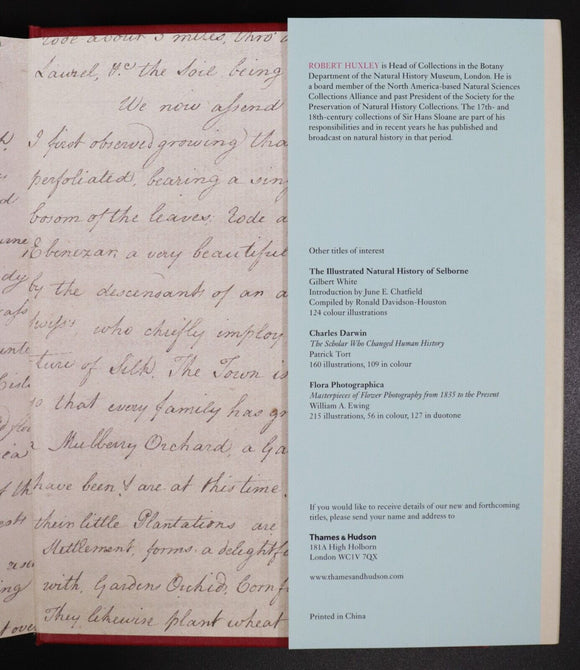 rode about 5 miles, thro' a
Laurel, &c. the Soil being
We now assend
I first observed growing tha
perfoliated, bearing a sing
bosom of the leaves. Rode a
Ebenezar, a very beautiful
by the descendants of an a
who chiefly employ
ture of Silk. The Town is
so that every family has gr
a Mulberry Orchard, a Ga
have been & are at this time
their little Plantations are
Settlement, forms a delightf
with, Gardens Orchid, Cornf
They likewise plant wheat
ROBERT HUXLEY is Head of Collections in the Botany
Department of the Natural History Museum, London. He is
a board member of the North America-based Natural Sciences
Collections Alliance and past President of the Society for the
Preservation of Natural History Collections. The 17th- and
18th-century collections of Sir Hans Sloane are part of his
responsibilities and in recent years he has published and
broadcast on natural history in that period.
Other titles of interest
The Illustrated Natural History of Selborne
Gilbert White
Introduction by June E. Chatfield
Compiled by Ronald Davidson-Houston
124 colour illustrations
Charles Darwin
The Scholar Who Changed Human History
Patrick Tort
160 illustrations, 109 in colour
Flora Photographica
Masterpieces of Flower Photography from 1835 to the Present
William A. Ewing
215 illustrations, 56 in colour, 127 in duotone
If you would like to receive details of our new and forthcoming
titles, please send your name and address to
Thames & Hudson
181A High Holborn
London WC1V 7QX
www.thamesandhudson.com
Printed in China